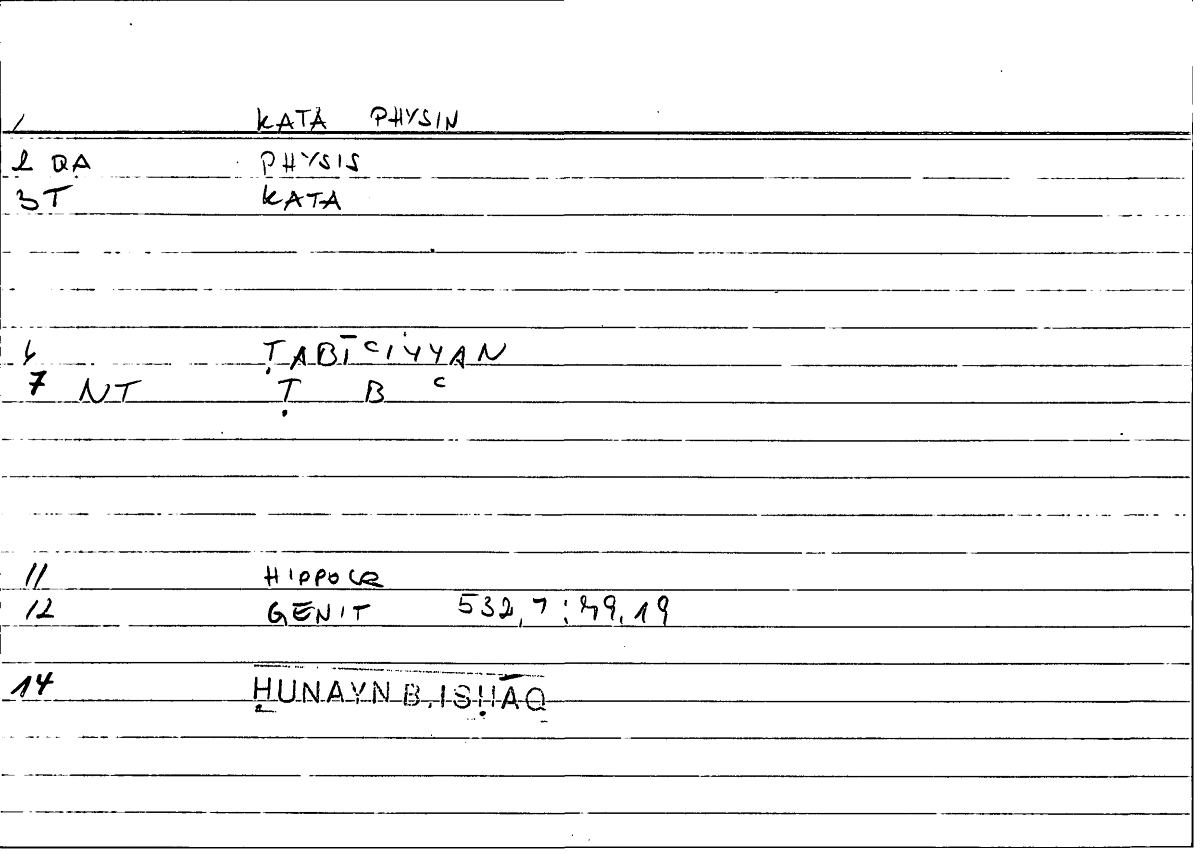 1 KATA PHYSIN
2 QA PHYSIS
3 T KATA
6 ṬABĪCIYYAN
7 NT Ṭ B C
11 HIPPOCR
12 GENIT 532, 7 : 49, 19
14 ḤUNAYN B. ISḤĀQ